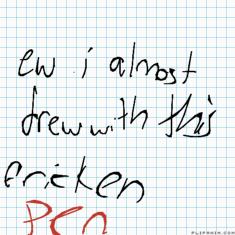 ew i almost
drew with this
fricken
pen
FLIPANIM.COM